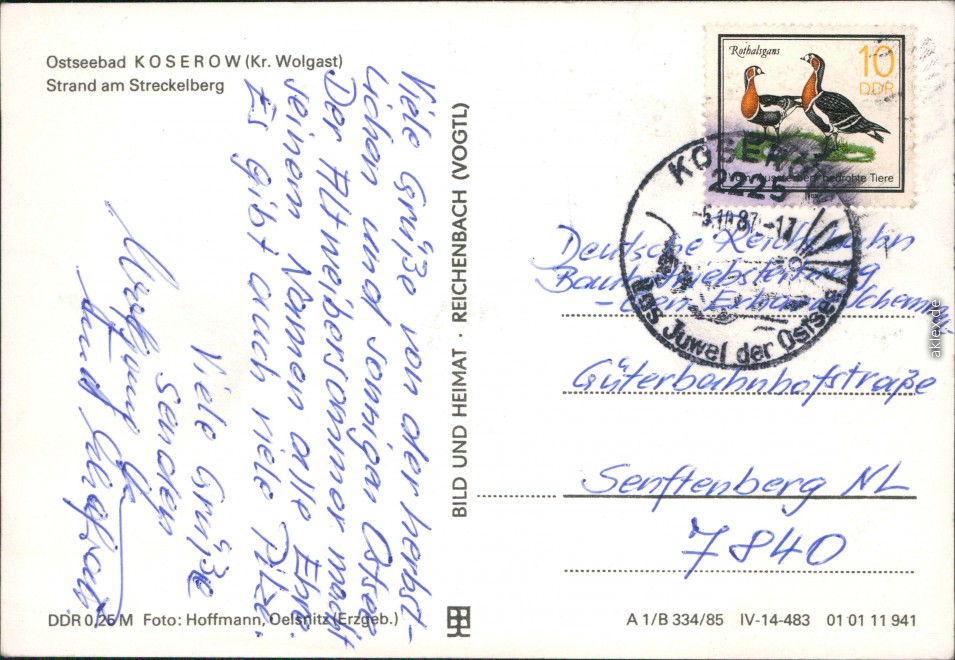 Ostseebad KOSEROW (Kr. Wolgast)
Strand am Streckelberg
Viele Grüße von der herbst-
lichen und sonnigen Ostsee
Der Altweibersommer macht
seinem Namen alle Ehre.
Es gibt auch viele Pilze.
Viele Grüße
senden
BILD UND HEIMAT · REICHENBACH (VOGTL)
Rothalsgans
10
DDR
Vom Aussterben bedrohte Tiere
KOSEROW
2225
-5.10.87-17
Das Juwel der Ostsee
Deutsche Reichsbahn
Güterbahnhofstraße
Senftenberg NL
7840
DDR 0,25 M Foto: Hoffmann, Oelsnitz (Erzgeb.)
A 1/B 334/85 IV-14-483 01 01 11 941
aklex.de